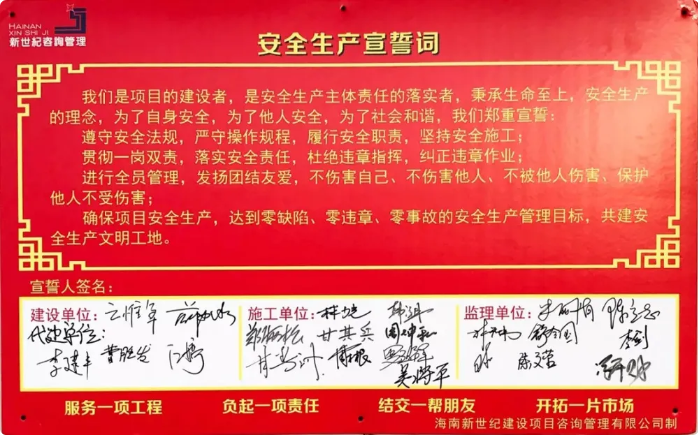 HAINAN
XIN SHI JI
新世紀咨詢管理
安全生产宣誓词
我们是项目的建设者，是安全生产主体责任的落实者，秉承生命至上，安全生产
的理念，为了自身安全，为了他人安全，为了社会和谐，我们郑重宣誓：
遵守安全法规，严守操作规程，履行安全职责，坚持安全施工；
贯彻一岗双责，落实安全责任，杜绝违章指挥，纠正违章作业；
进行全员管理，发扬团结友爱，不伤害自己、不伤害他人、不被他人伤害、保护
他人不受伤害；
确保项目安全生产，达到零缺陷、零违章、零事故的安全生产管理目标，共建
安全生产文明工地。
宣誓人签名：
建设单位：
代建单位：
李建丰 曹胜发
施工单位：
甘其兵
吴济平
监理单位：
服务一项工程 负起一项责任 结交一帮朋友 开拓一片市场
海南新世纪建设项目咨询管理有限公司制